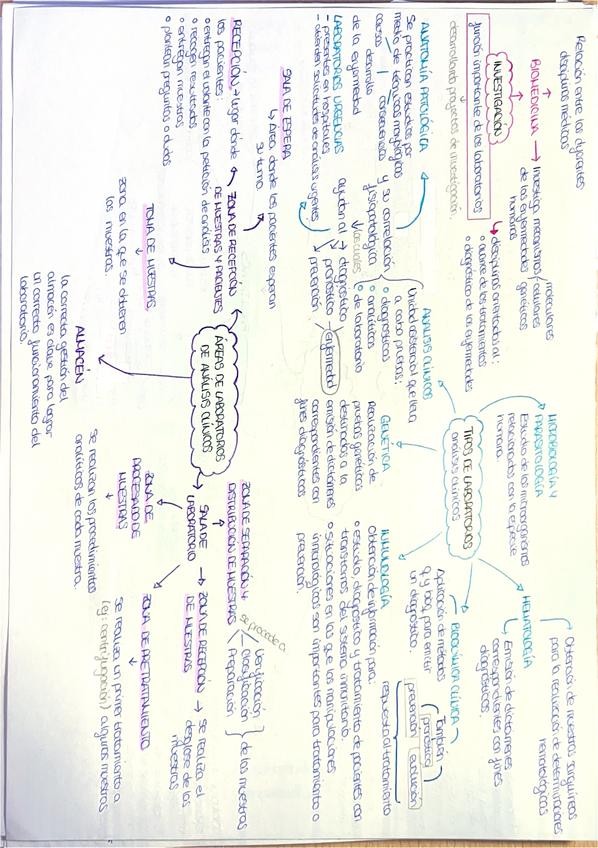 Relación entre las diferentes
disciplinas médicas
BIOMEDICINA → Investiga mecanismos
moleculares
celulares
genéticos
de las enfermedades
humanas
INVESTIGACIÓN
función importante de los laboratorios
desarrollando proyectos de investigación.
disciplinas orientadas al:
avance de los tratamientos
diagnóstico de las enfermedades
TIPOS DE LABORATORIOS
análisis clínicos
MICROBIOLOGÍA Y
PARASITOLOGÍA
Estudio de los microorganismos
relacionados con la especie
humana.
HEMATOLOGÍA
Obtención de muestras sanguíneas
para la realización de determinaciones
hematológicas
Emisión de dictámenes
correspondientes con fines
diagnósticos.
ANATOMÍA PATOLÓGICA
Se practican estudios por
medio de técnicas morfológicas
causas
desarrollo
consecuencias
de la enfermedad
y su correlación
fisiopatológica
ANÁLISIS CLÍNICOS
Unidad asistencial que lleva
a cabo pruebas:
diagnósticas
analíticas
de laboratorio
las cuales
ayudan al →
diagnóstico
pronóstico
prevención
enfermedad
GENÉTICA
Realización de
pruebas genéticas
destinadas a la
emisión de dictámenes
correspondientes con
fines diagnósticos
BIOQUÍMICA CLÍNICA
Aplicación de métodos
q y biog para emitir
un diagnóstico.
También
pronóstico
prevención
evolución
respuesta al tratamiento
INMUNOLOGÍA
Obtención de información para:
estudio, diagnóstico y tratamiento de pacientes con
trastornos del sistema inmunitario.
situaciones en las que las manipulaciones
inmunológicas son importantes para tratamiento o
prevención.
LABORATORIOS URGENCIAS
- presentes en hospitales
- atienden solicitudes de análisis urgentes
SALA DE ESPERA
↳ Área donde los pacientes esperan
su turno.
RECEPCIÓN → lugar dónde
los pacientes:
entregan el volante con la petición de análisis
recogen resultados
entregan muestras
plantean preguntas o dudas
ZONA DE RECEPCIÓN
DE MUESTRAS Y PACIENTES
TOMA DE MUESTRAS
zona en la que se obtienen
las muestras.
ÁREAS DE LABORATORIOS
DE ANÁLISIS CLÍNICOS
ALMACÉN
la correcta gestión del
almacén es clave para lograr
un correcto funcionamiento del
laboratorio.
SALA DE
LABORATORIO
ZONA DE SEPARACIÓN Y
DISTRIBUCIÓN DE MUESTRAS
se procede a
Verificación
Clasificación
Preparación
de las muestras
ZONA DE RECEPCIÓN
DE MUESTRAS
→ Se realiza el
desglose de las
muestras
ZONA DE
PROCESADO DE
MUESTRAS
se realizan los procedimientos
analíticos de cada muestra.
ZONA DE PRETRATAMIENTO
se realiza un primer tratamiento a
(ej: centrifugación) algunas muestras